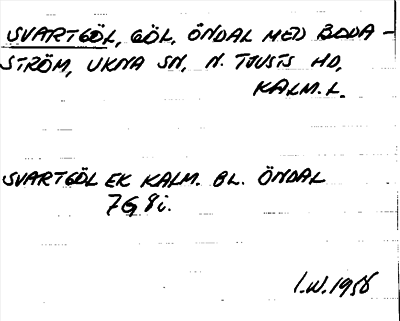 SVARTGÖL, GÖL, ÖNDAL MED BODA-
STRÖM, UKNA SN, N. TJUSTS HD,
KALM.L.
SVARTGÖL EK KALM. BL. ÖNDAL
7G8i.
I.W.1958